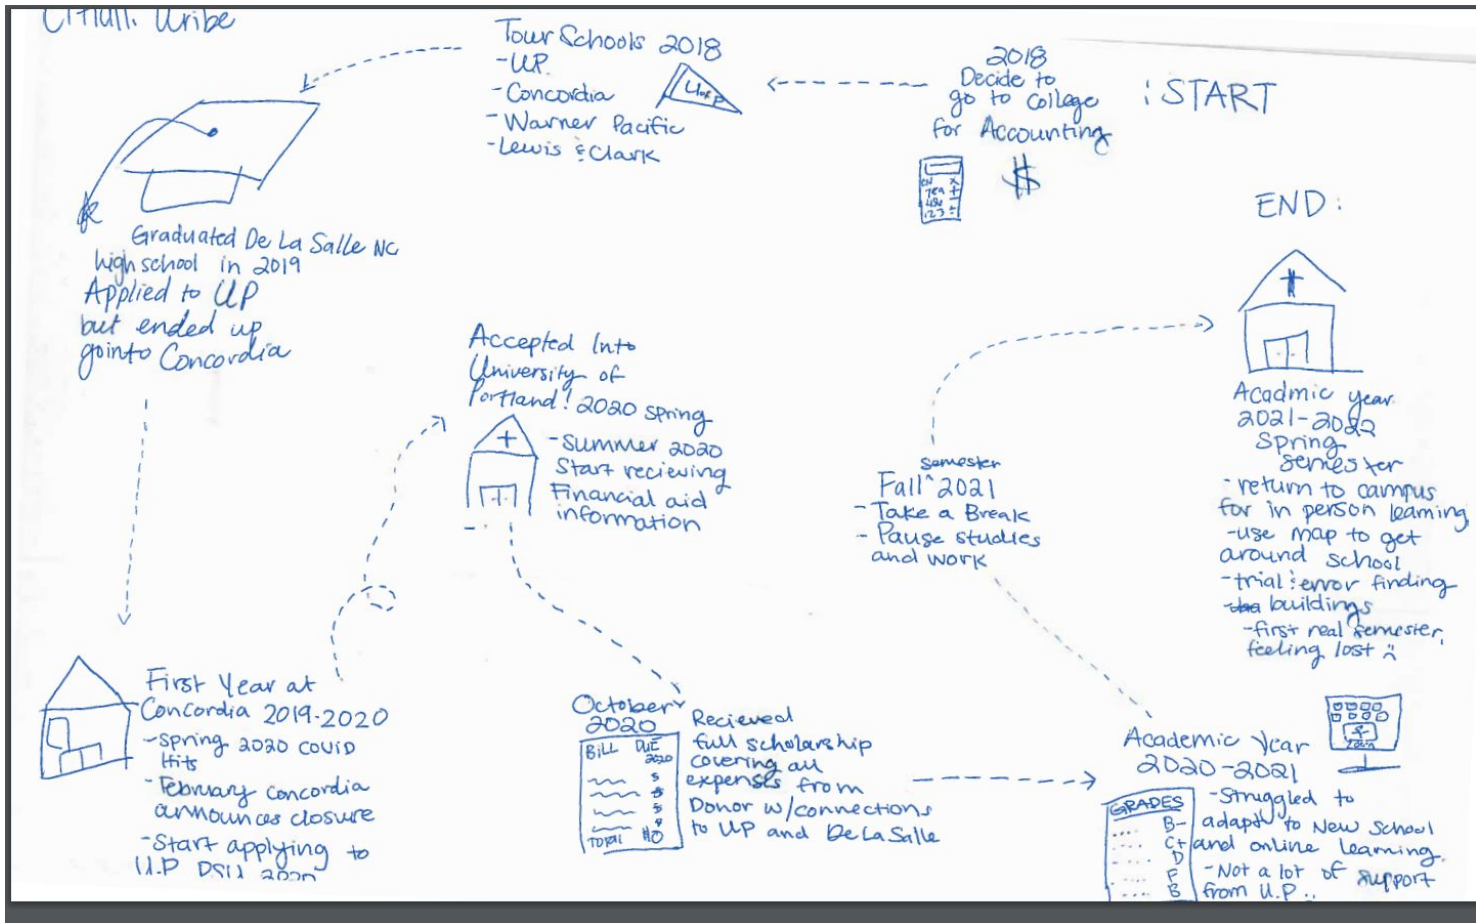 Citlali Uribe
: START
2018
Decide to
go to college
for Accounting
ON X
789 +
456 -
123 ÷
$
Tour Schools 2018
-U.P.
-Concordia
-Warner Pacific
-Lewis & Clark
U of P
Graduated De La Salle NC
high school in 2019
Applied to UP
but ended up
gointo Concordia
First Year at
Concordia 2019-2020
-Spring 2020 COVID
Hits
-February concordia
announces closure
-Start applying to
U.P PSU 2020
Accepted Into
University of
Portland! 2020 spring
-Summer 2020
Start recieving
Financial aid
information
October
2020
BILL DUE
2020
$
$
$
$
TOTAL $0
Recieved
full scholarship
covering all
expenses from
Donor w/connections
to UP and De La Salle
Academic Year
2020-2021
GRADES
.... B-
.... C+
.... D
.... F
.... B
-Struggled to
adapt to New School
and online learning.
-Not a lot of support
from U.P..
semester
Fall^2021
-Take a Break
-Pause studies
and work
END:
Acadmic year
2021-2022
Spring
semester
-return to campus
for in person learning
-use map to get
around school
-trial & error finding
buildings
-first real semester,
feeling lost